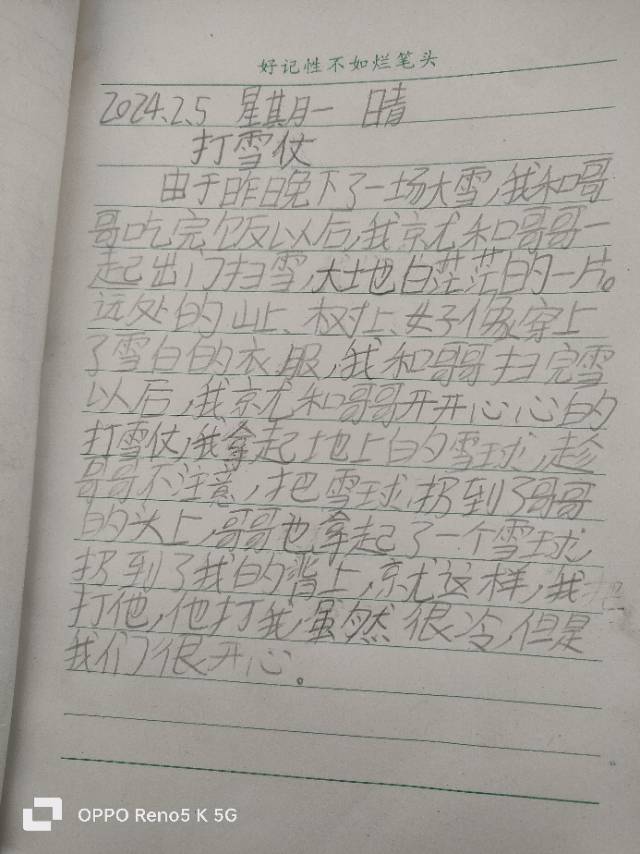 好记性不如烂笔头
2024.2.5 星期一 晴
打雪仗
由于昨晚下了一场大雪,我和哥
哥吃完饭以后,我就和哥哥一
起出门扫雪,大地白茫茫的一片。
远处的山上、树上、好像穿上
了雪白的衣服,我和哥哥扫完雪
以后,我就和哥哥开开心心的
打雪仗,我拿起地上的雪球,趁
哥哥不注意,把雪球扔到了哥哥
的头上,哥哥也拿起了一个雪球,
扔到了我的背上,就这样,我
打他,他打我,虽然很冷,但是
我们很开心。
OPPO Reno5 K 5G